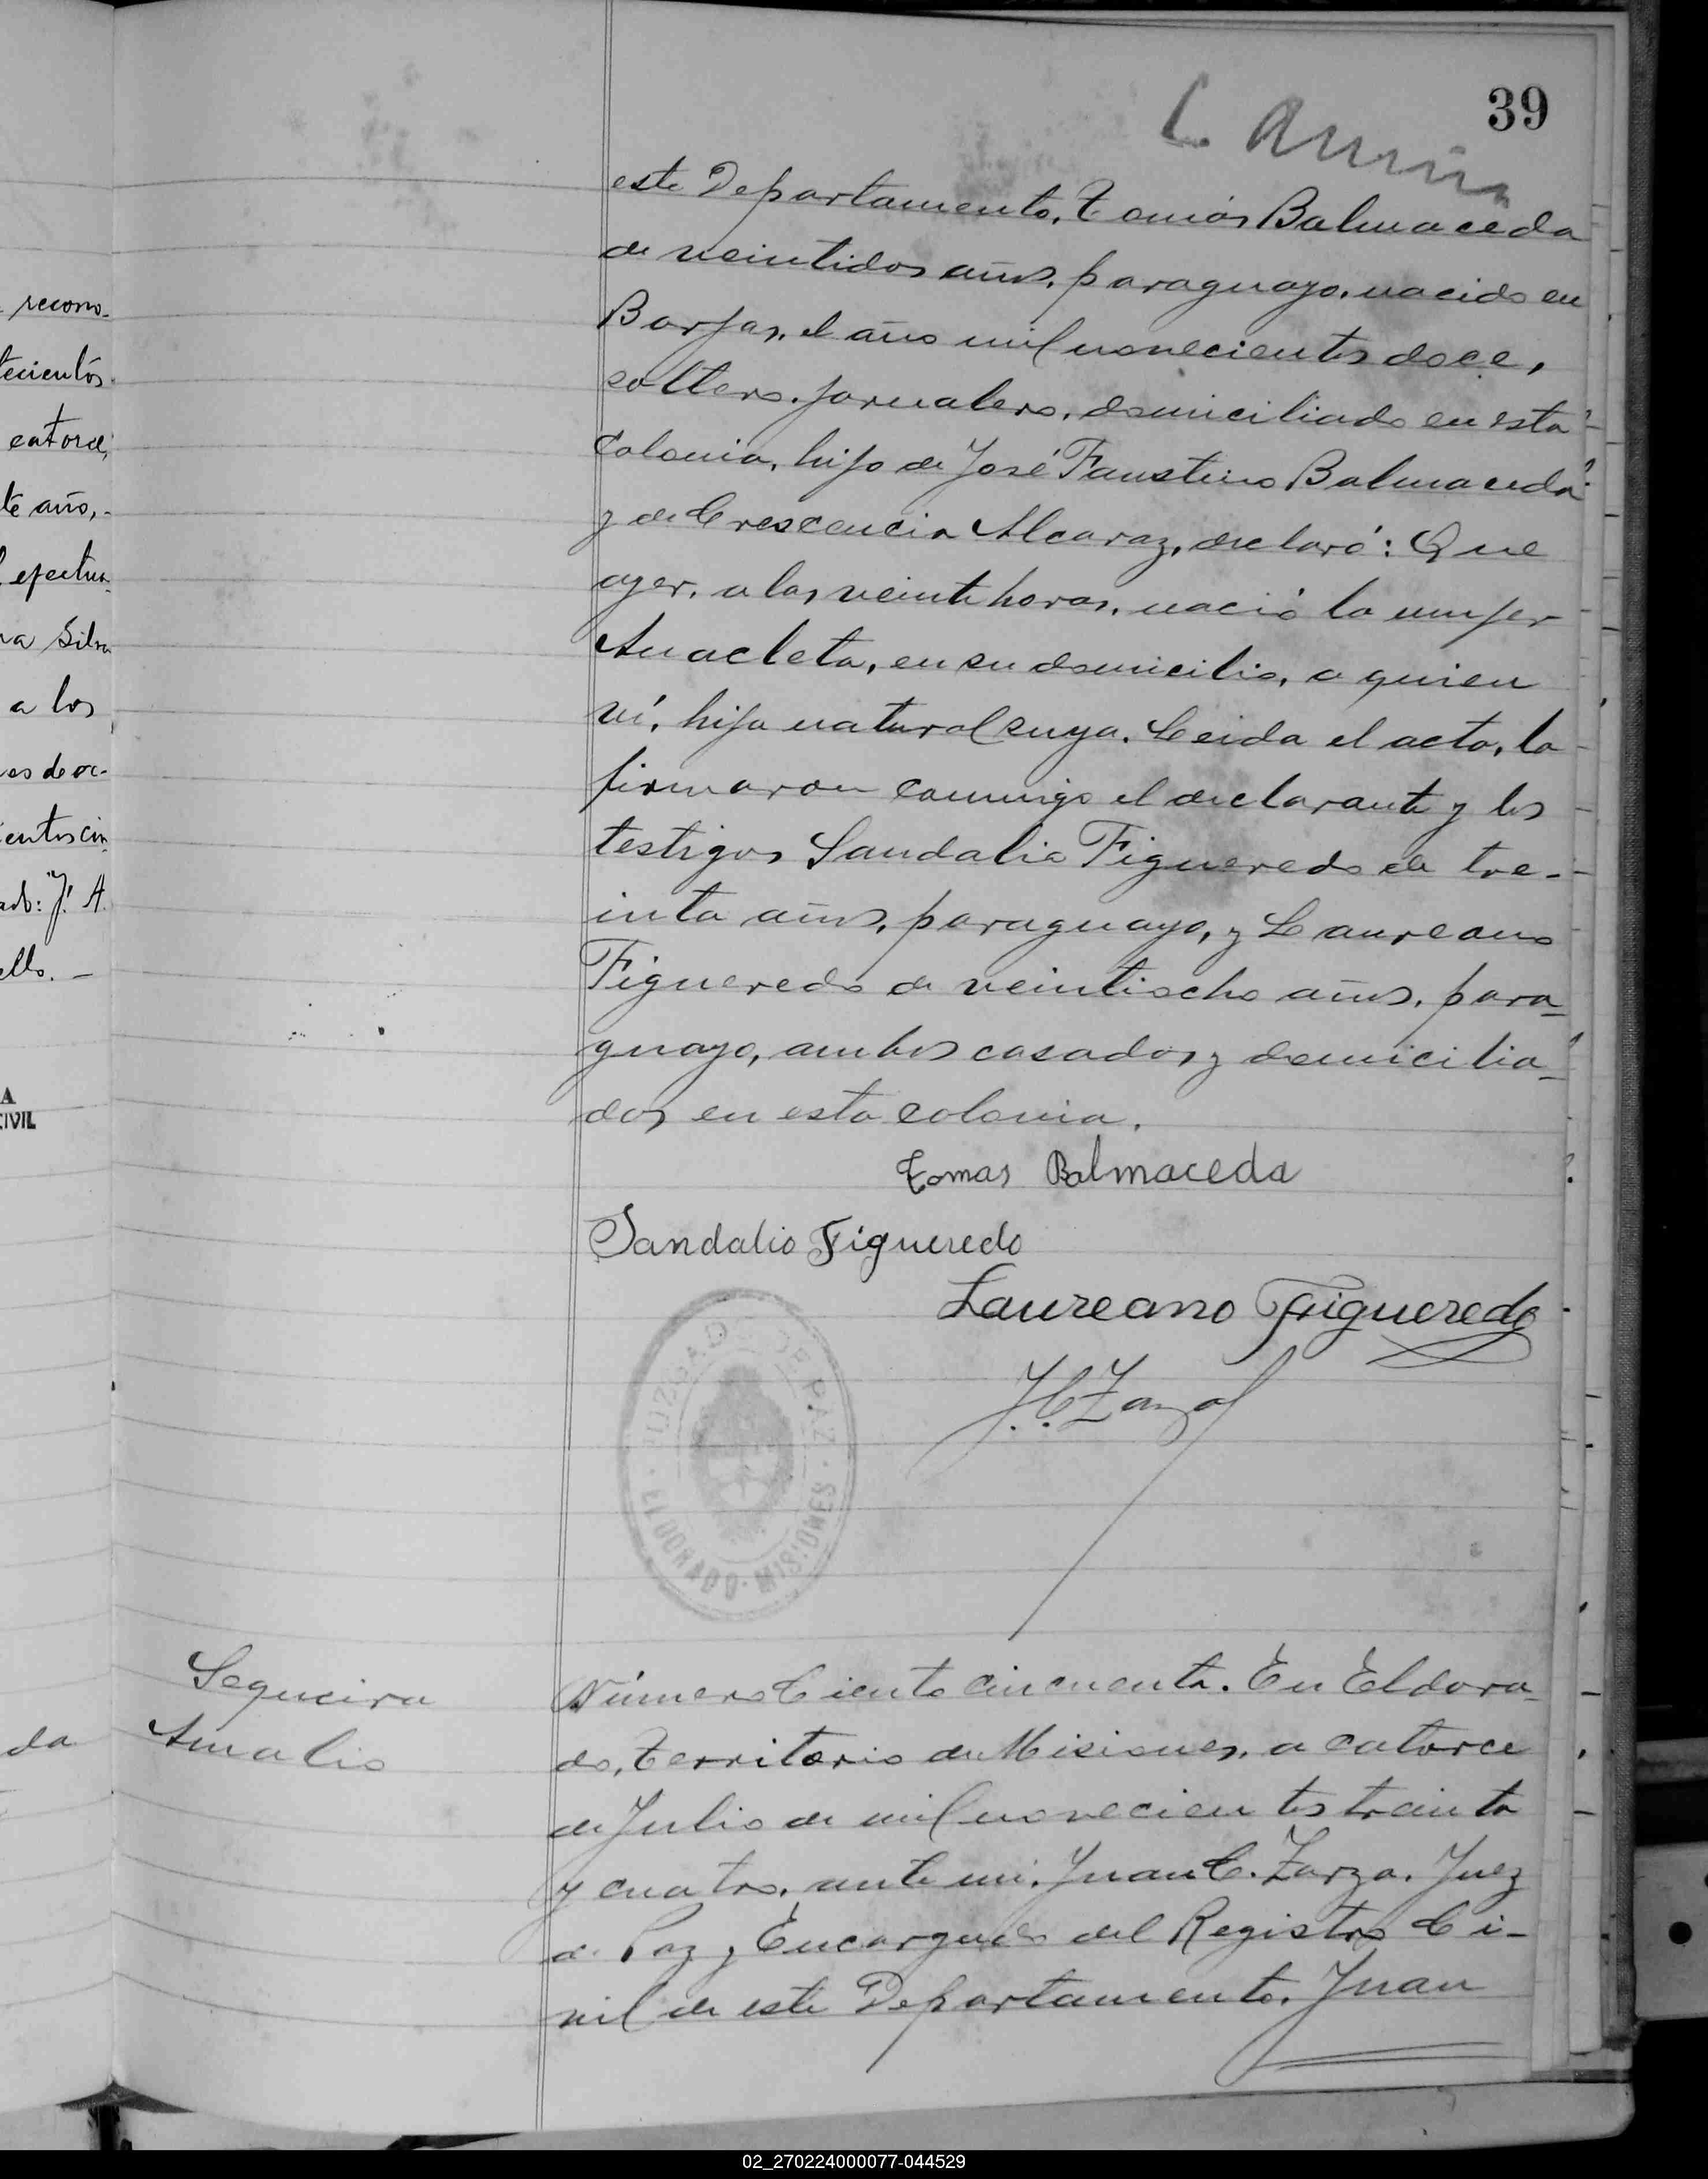 39
este Departamento, Tomás Balmaceda
de veintidos años, paraguayo, nacido en
Borjas, el año mil novecientos doce,
soltero, jornalero, domiciliado en esta
Colonia, hijo de José Faustino Balmaceda
y de Crescencia Alcaraz, declaró: Que
ayer, a las veinte horas, nació la mujer
Anacleta, en su domicilio, a quien
ví, hija natural suya. Leida el acta, la
firmaron conmigo el declarante y los
testigos Sandalio Figueredo de tre-
inta años, paraguayo, y Laureano
Figueredo de veintiocho años, para-
guayo, ambos casados y domicilia-
dos en esta colonia.
Tomas Balmaceda
Sandalio Figueredo
Laureano Figueredo
J. C. Zarza
JUZGADO DE PAZ
ELDORADO - MISIONES
Sequeira
Amalio
Número Ciento cincuenta. En Eldora-
do, Territorio de Misiones, a catorce
de Julio de mil novecientos treinta
y cuatro, ante mi, Juan C. Zarza, Juez
de Paz y Encargado del Registro Ci-
vil de este Departamento, Juan
recono-
tecientos
catorce,
te año,-
efectua
Silva
a los
es de oc-
ientos cin
J. A.
ello. -
A
CIVIL
da
02_270224000077-044529